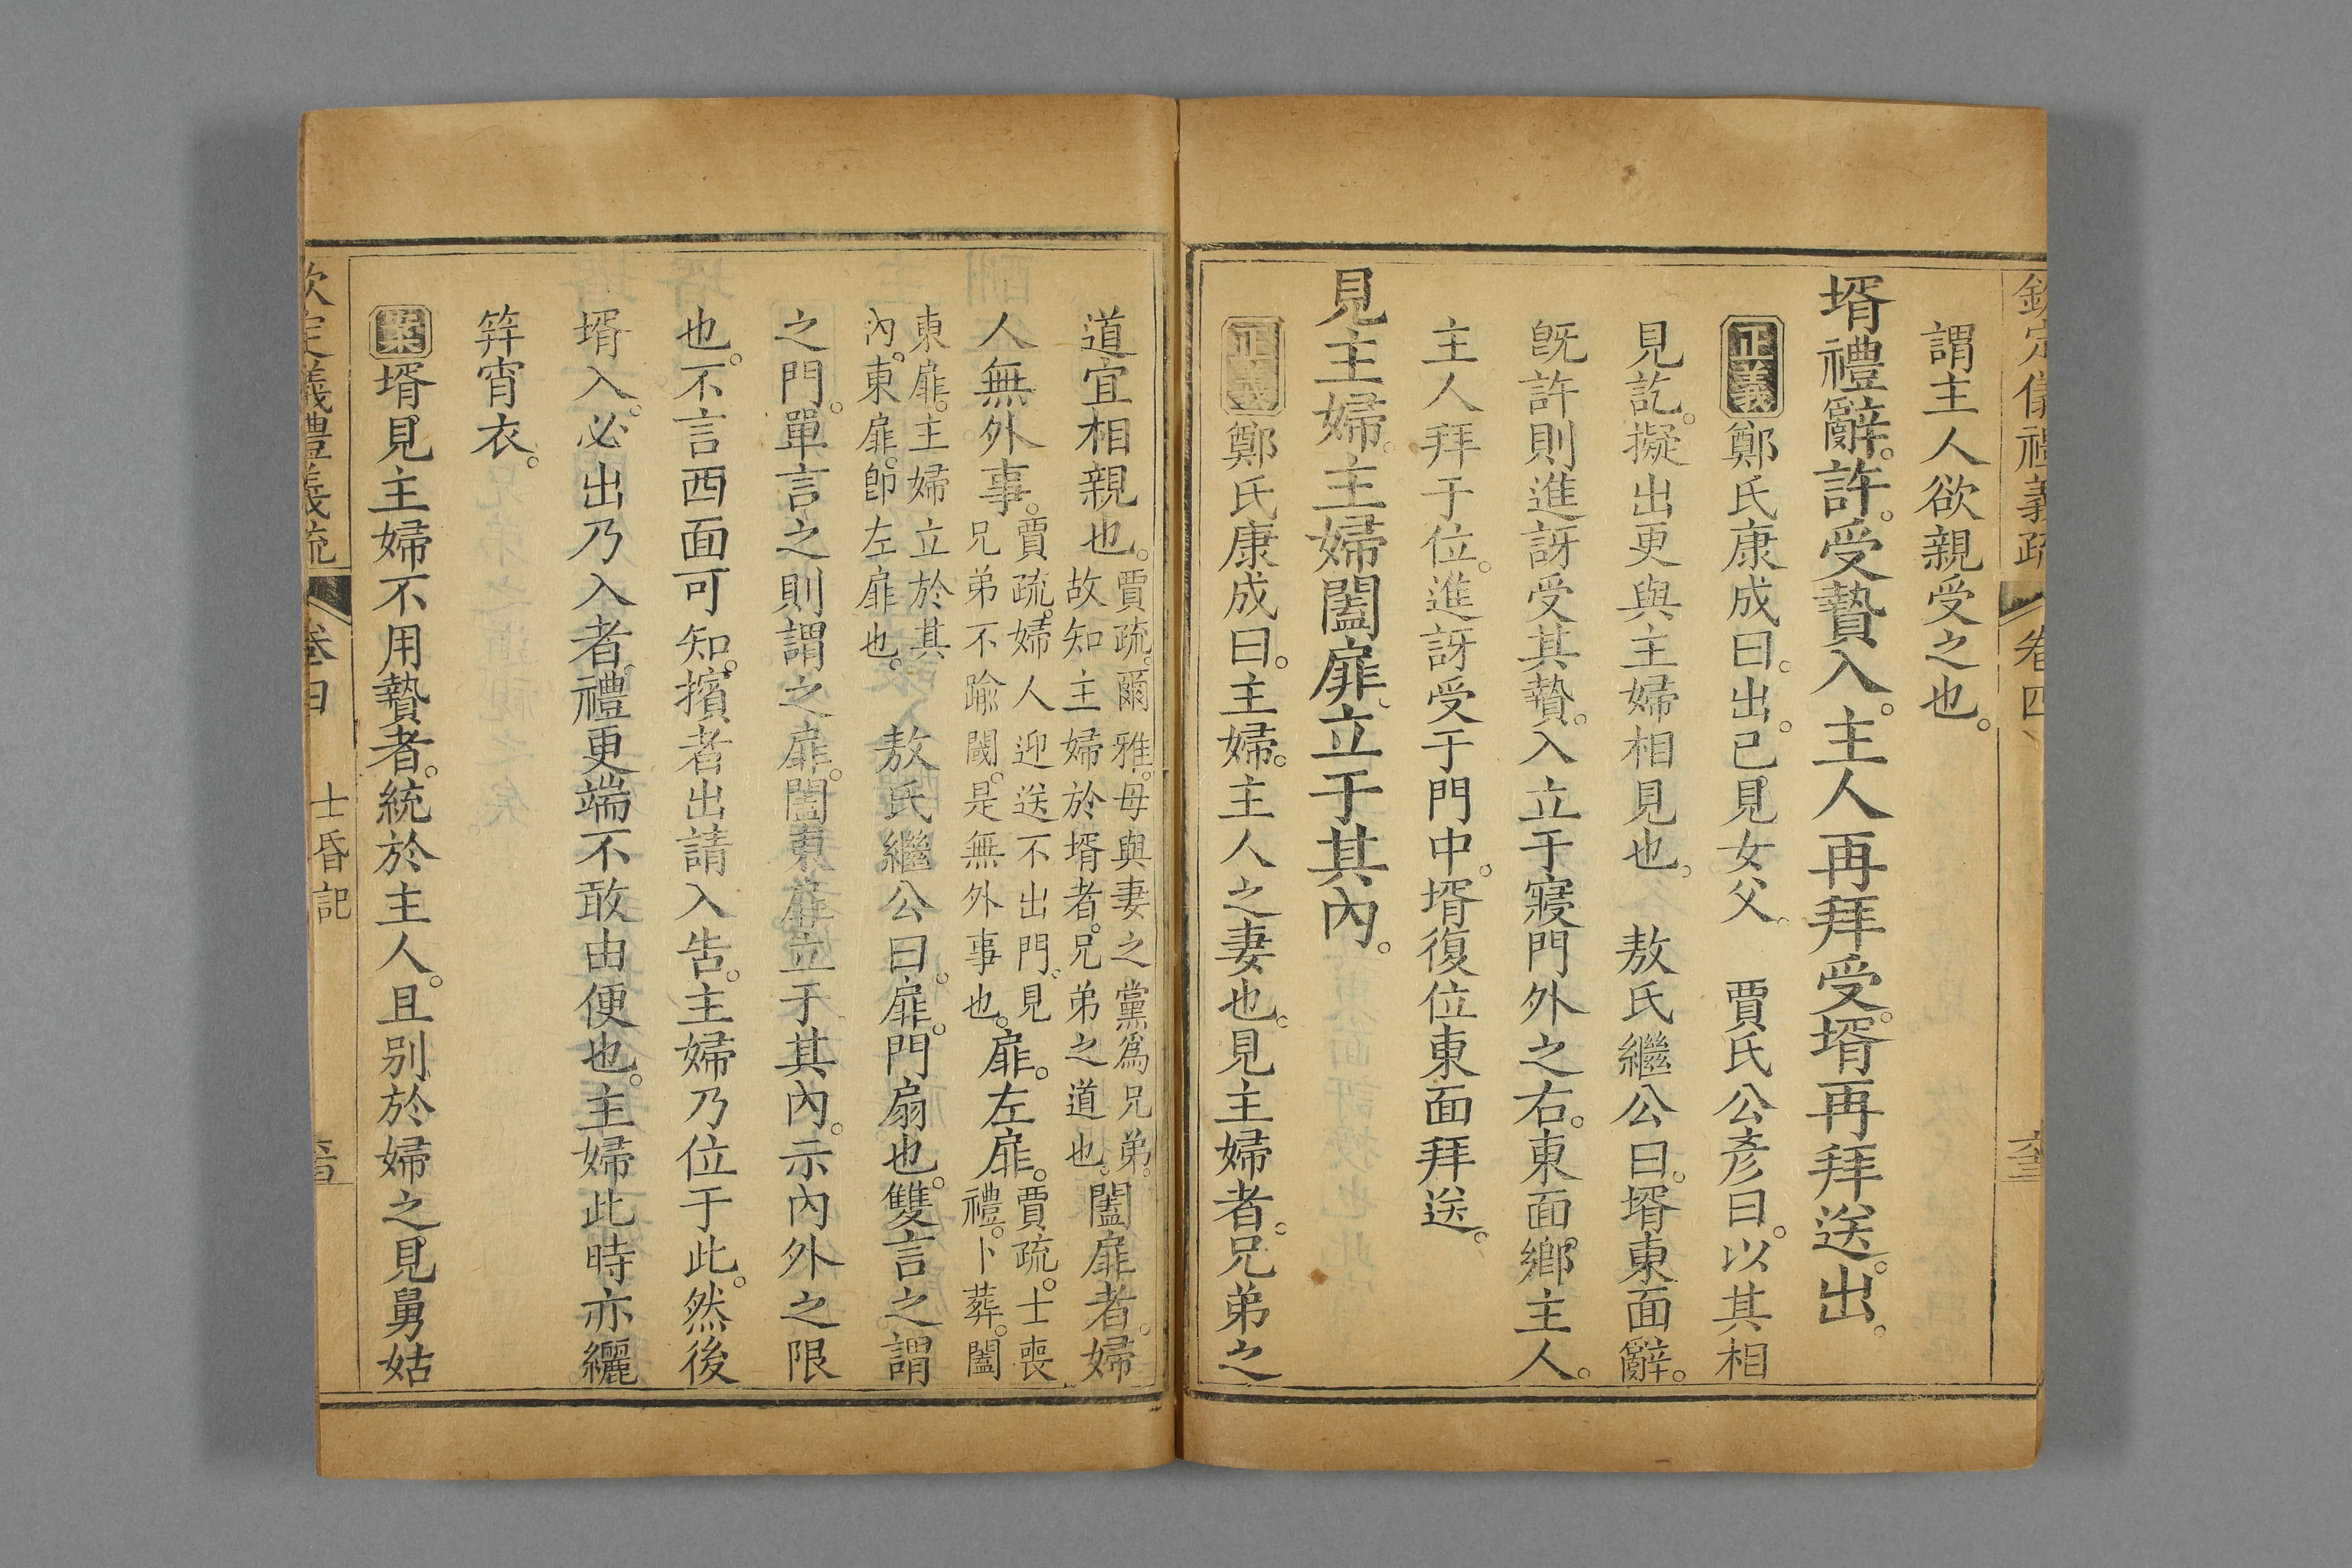 欽定儀禮義疏 卷四
謂主人欲親受之也。
壻禮辭。許。受贄入。主人再拜受。壻再拜送。出。
正義鄭氏康成曰。出。已見女父。 賈氏公彥曰。以其相
見訖。擬出更與主婦相見也。 敖氏繼公曰。壻東面辭。
旣許則進訝受其贄。入立于寢門外之右。東面。鄉主人。
主人拜于位。進訝受于門中。壻復位東面拜送。
見主婦。主婦闔扉。立于其內。
正義鄭氏康成曰。主婦。主人之妻也。見主婦者。兄弟之
道宜相親也。賈疏。爾雅。母與妻之黨爲兄弟。故知主婦於壻者。兄弟之道也。闔扉者。婦
人無外事。賈疏。婦人迎送不出門。見兄弟不踰閾。是無外事也。扉。左扉。賈疏。士喪禮。卜葬。闔
東扉。主婦立於其內。東扉。卽左扉也。 敖氏繼公曰。扉。門扇也。雙言之謂
之門。單言之則謂之扉。闔東扉立于其內。示內外之限
也。不言西面可知。擯者出請入告。主婦乃位于此。然後
壻入。必出乃入者。禮更端不敢由便也。主婦此時亦纚
笄宵衣。
案壻見主婦不用贄者。統於主人。且別於婦之見舅姑
欽定儀禮義疏 卷四 士昏記